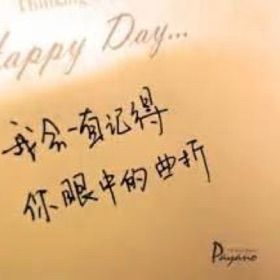 Thinking
Happy Day...
我会一直记得
你眼中的曲折
Payano